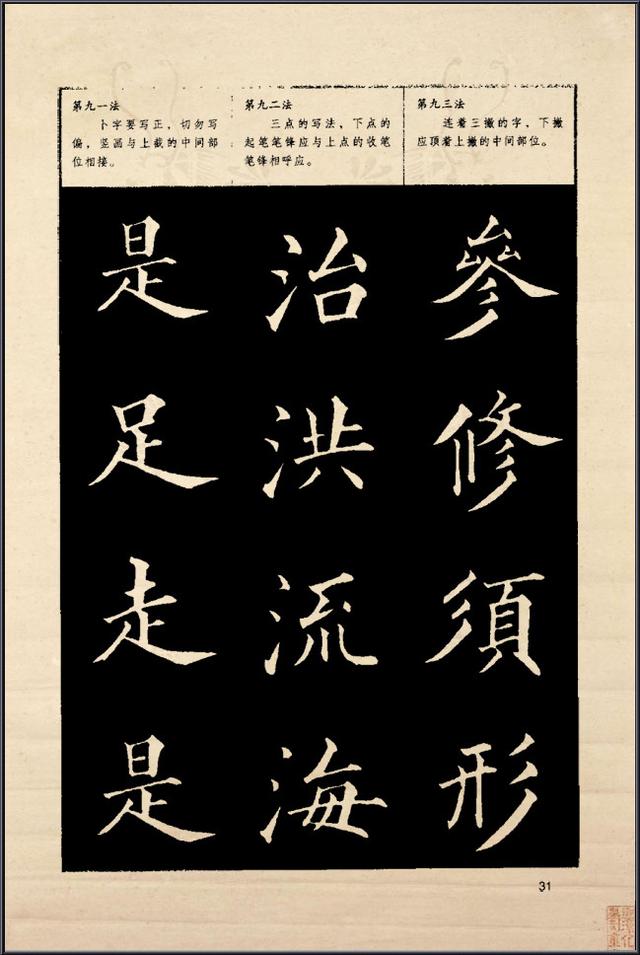 第九一法
卜字要写正，切勿写
偏，竖画与上截的中间部
位相接。
第九二法
三点的写法，下点的
起笔笔锋应与上点的收笔
笔锋相呼应。
第九三法
连着三撇的字，下撇
应顶着上撇的中间部位。
是 治 參
足 洪 修
走 流 須
是 海 形
31